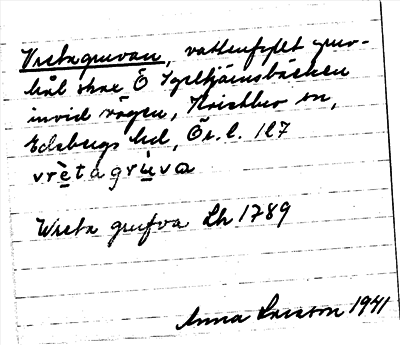 Vretagruvan, vattenfyllt gruv-
hål strax Ö Igeltjärnsbäcken
invid vägen, Kvistbro sn,
Edsbergs hd, Ör. l. 127
vrètagrùva
Wreta grufva Lh 1789
Anna Larsson 1941